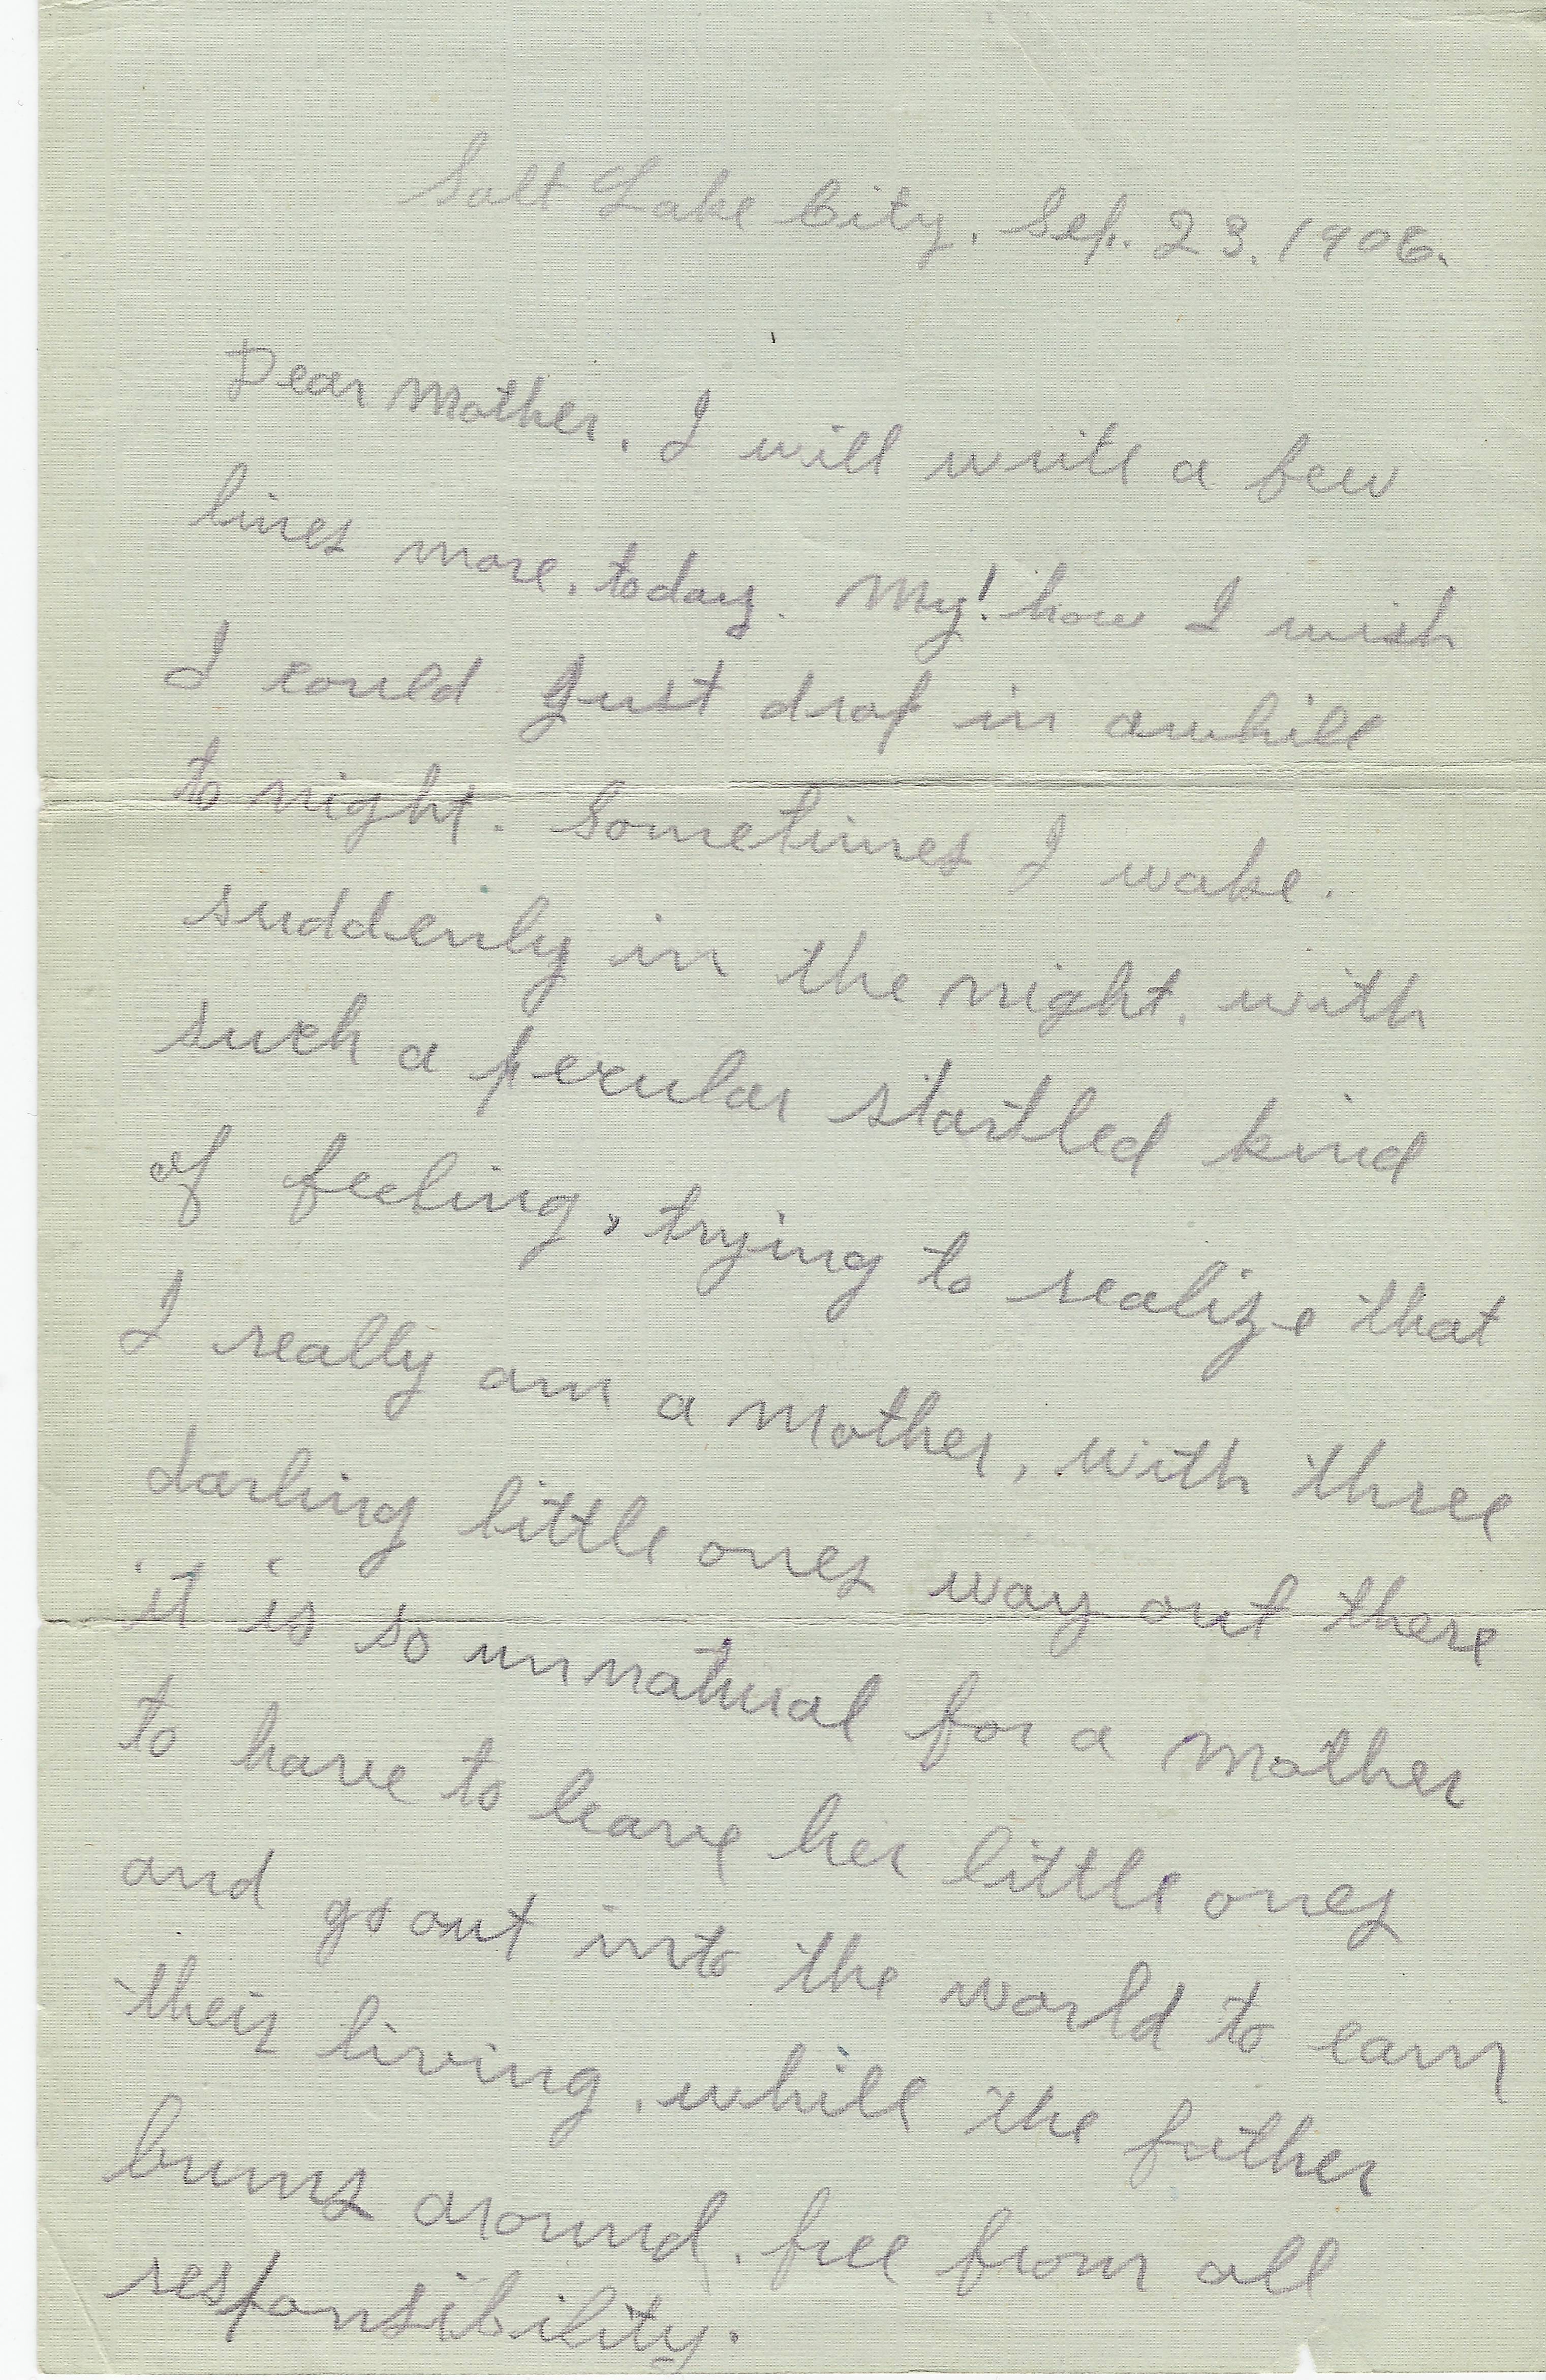 Salt Lake City. Sep. 23. 1906.
Dear Mother. I will write a few
lines more. today. My! how I wish
I could Just drop in awhile
to night. Sometimes I wake.
suddenly in the night. with
such a peculas startled kind
of feeling, trying to realize that
I really am a Mother, with three
darling little ones way out there
it is so unnatural for a Mother
to have to leave her little ones
and go out into the world to earn
their living. while the father
bums around. free from all
responsibility.